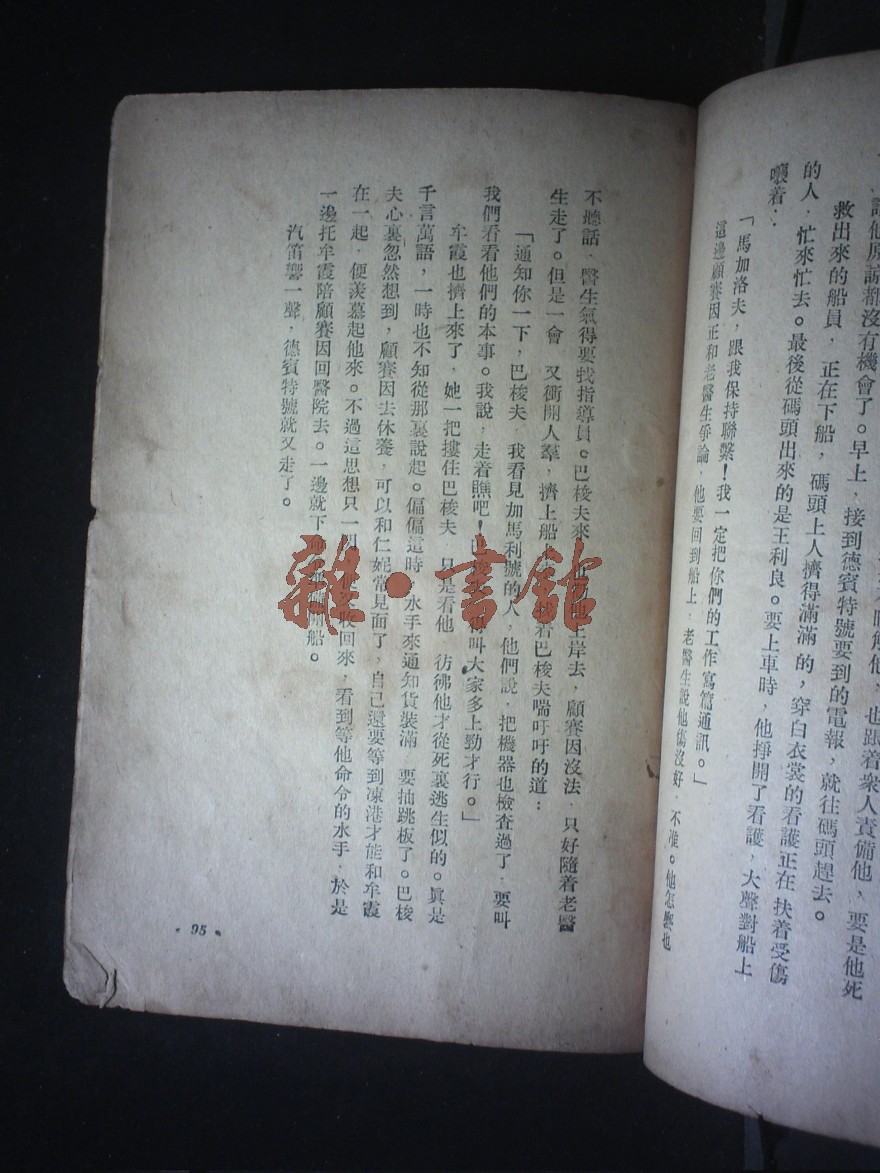 有機會了。早上,接到德賓特號要到的電報,就往碼頭趕去。
救出來的船員,正在下船,碼頭上人擠得滿滿的,穿白衣裳的看護正在扶着受傷
的人,忙來忙去。最後從碼頭出來的是王利良。要上車時,他掙開了看護,大聲對船上
嚷着:
「馬加洛夫,跟我保持聯繫!我一定把你們的工作寫篇通訊。」
這邊顧賽因正和老醫生爭論,他要回到船上,老醫生說他傷沒好,不准。他怎麼也
不聽話,醫生氣得要找指導員。巴梭夫來上岸去,顧賽因沒法,只好隨着老醫
生走了。但是一會,又衝開人羣,擠上船巴梭夫喘吁吁的道:
「通知你一下,巴梭夫,我看見加馬利號的人,他們說,把機器也檢查過了,要叫
我們看看他們的本事。我說,走着瞧吧!叫大家多上勁才行。」
牟霞也擠上來了,她一把摟住巴梭夫,只是看他,彷彿他才從死裏逃生似的。眞是
千言萬語,一時也不知從那裏說起。偏偏這時,水手來通知貨裝滿,要抽跳板了。巴梭
夫心裏忽然想到,顧賽因去休養,可以和仁妮常見面了,自己還要等到凍港才能和牟霞
在一起,便羨慕起他來。不過這思想只一收回來,看到等他命令的水手,於是
一邊托牟霞陪顧賽因回醫院去。一邊就下船。
汽笛響一聲,德賓特號就又走了。
95
雜·書館